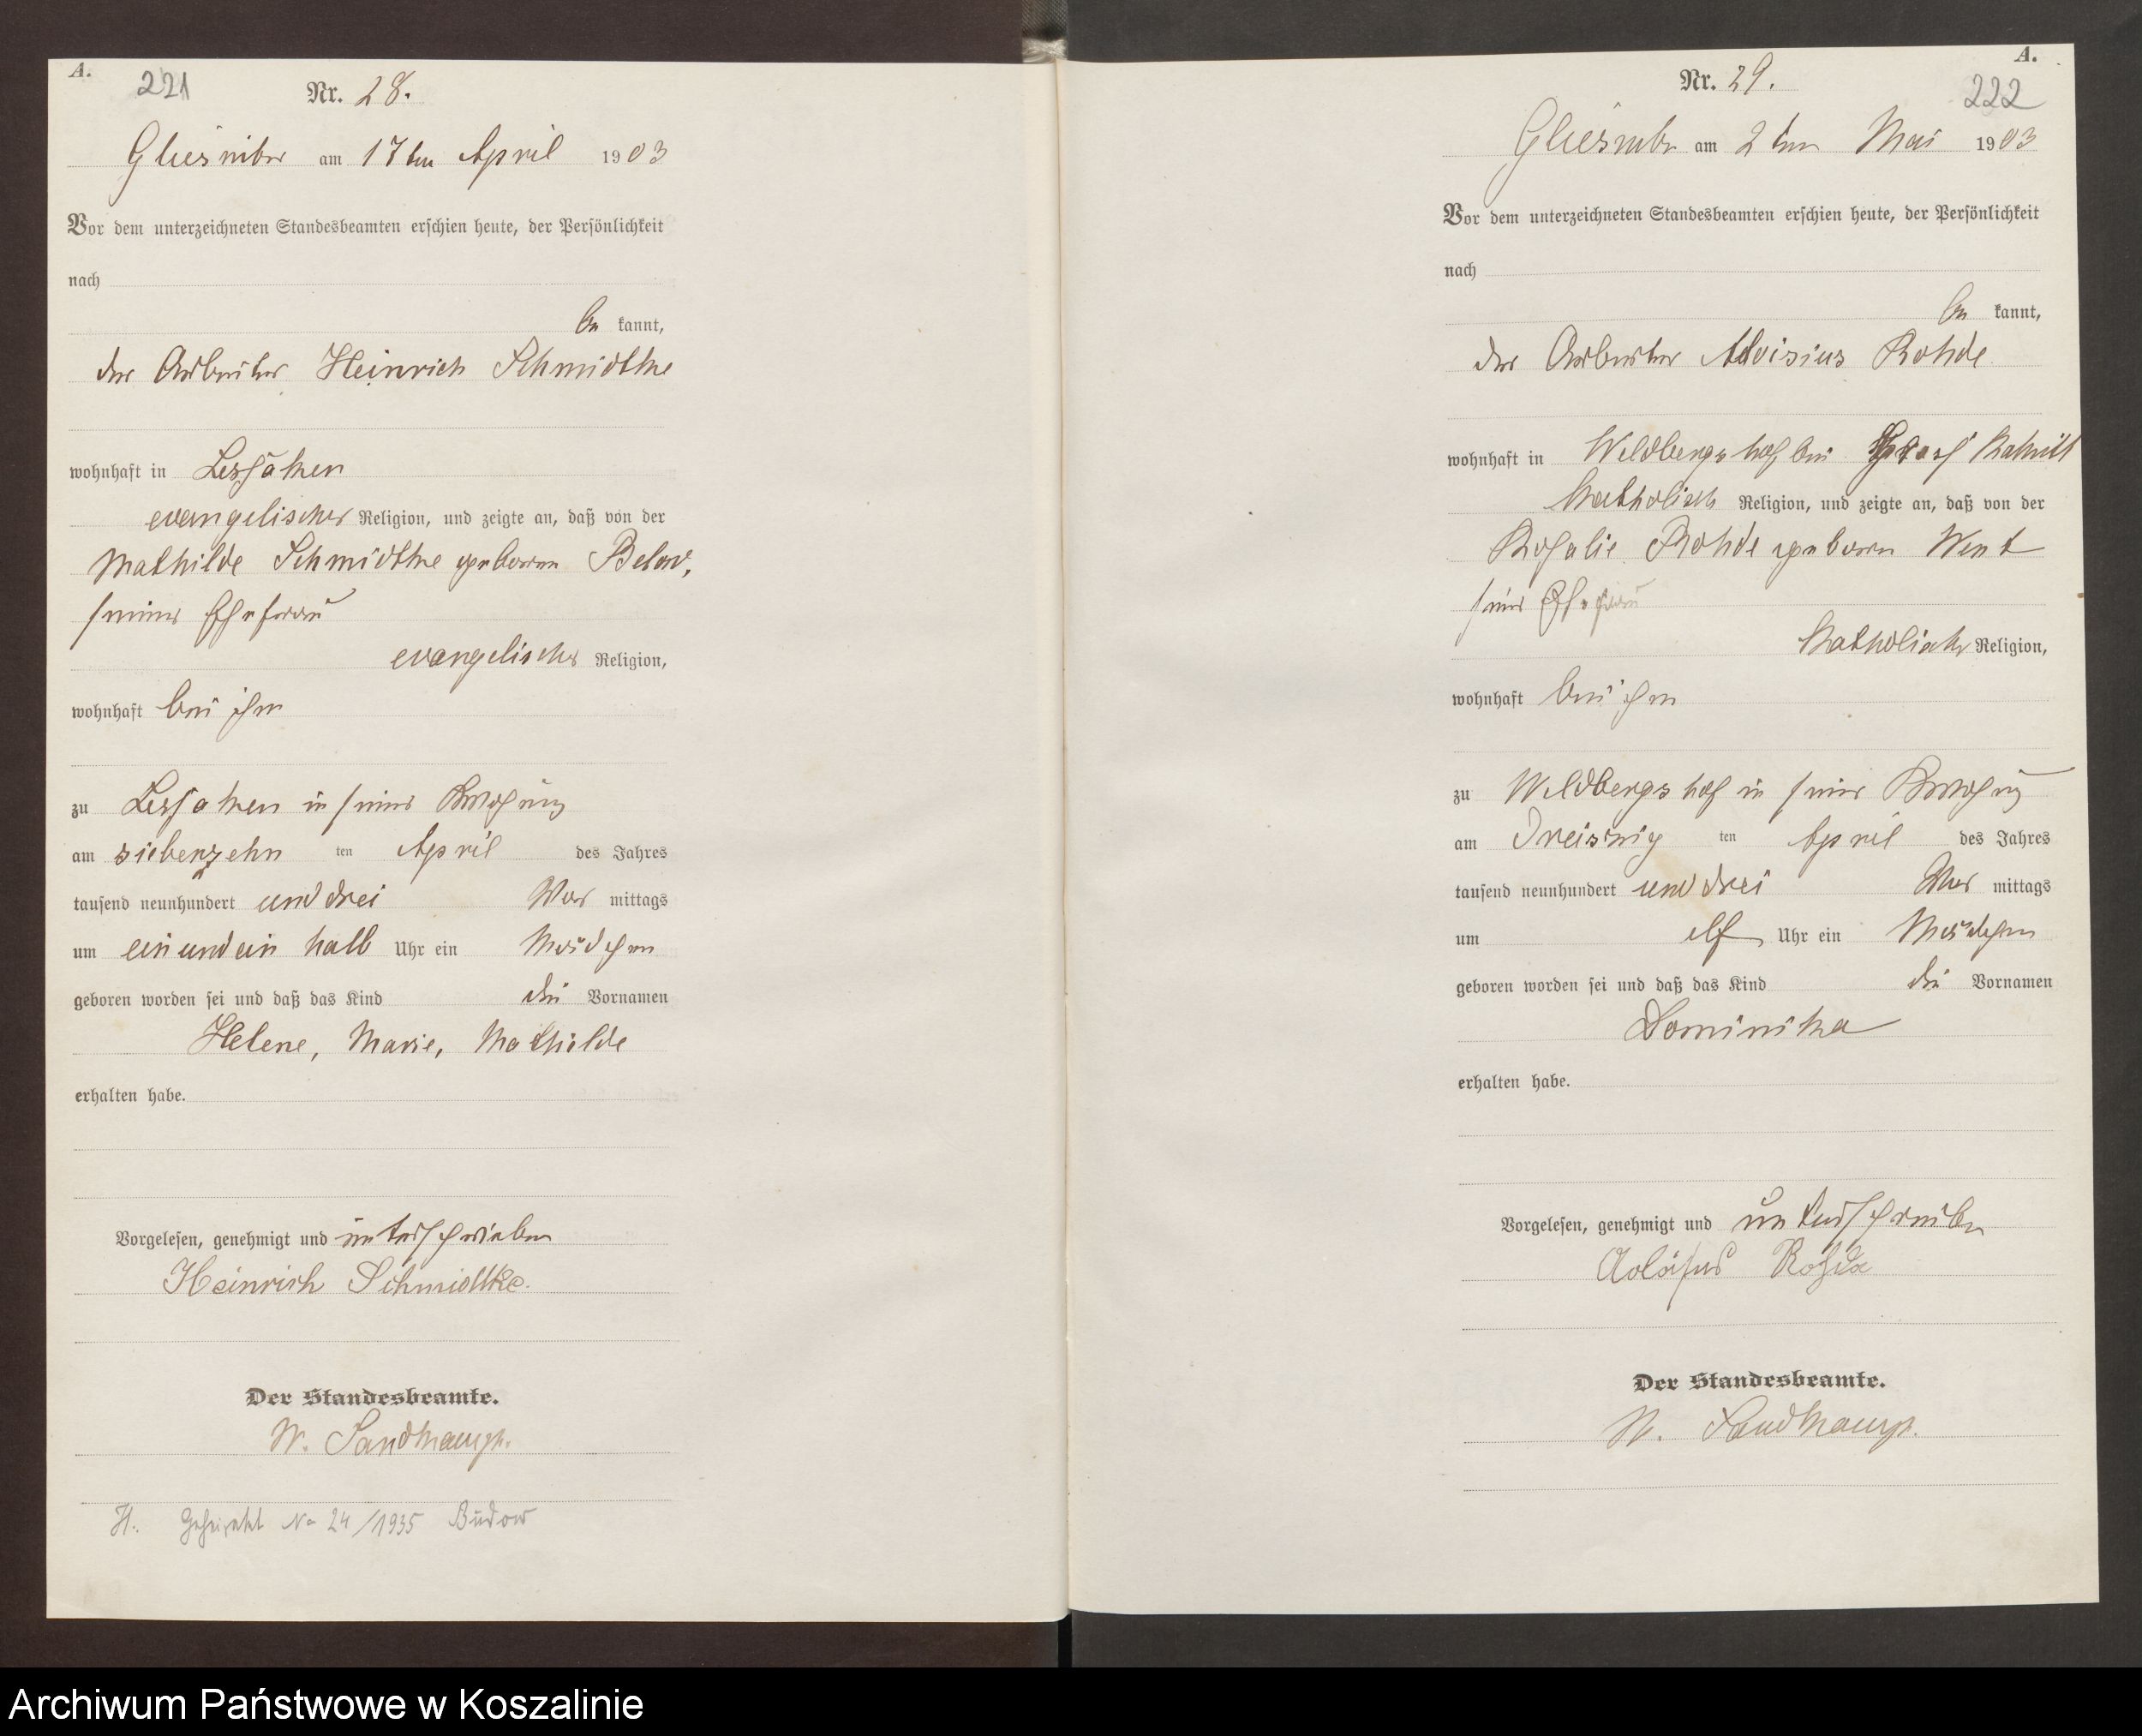 A.
221
Nr. 28.
Gliesnitz am 17ten April 1903
Vor dem unterzeichneten Standesbeamten erschien heute, der Persönlichkeit
nach
be kannt,
der Arbeiter Heinrich Schmidtke
wohnhaft in Lessaken
evangelischer Religion, und zeigte an, daß von der
Mathilde Schmidtke geboren Below,
seiner Ehefrau
evangelischer Religion,
wohnhaft bei ihm
zu Lessaken in seiner Wohnung
am siebenzehn ten April des Jahres
tausend neunhundert und drei Vor mittags
um ein und ein halb Uhr ein Mädchen
geboren worden sei und daß das Kind die Vornamen
Helene, Marie, Mathilde
erhalten habe.
Vorgelesen, genehmigt und unterschrieben
Heinrich Schmidtke.
Der Standesbeamte.
W. Sandkamp.
H. Geheiratet No 24/1935 Budow
A.
Nr. 29.
222
Gliesnitz am 2ten Mai 1903
Vor dem unterzeichneten Standesbeamten erschien heute, der Persönlichkeit
nach
be kannt,
der Arbeiter Aloisius Rohde
wohnhaft in Wildbergshof bei
katholisch Religion, und zeigte an, daß von der
Rosalie Rohde geboren Went
seine Ehefrau
katholisch Religion,
wohnhaft bei ihm
zu Wildbergshof in seiner Wohnung
am Dreissig ten April des Jahres
tausend neunhundert und drei Vor mittags
um elf Uhr ein Mädchen
geboren worden sei und daß das Kind die Vornamen
Dominika
erhalten habe.
Vorgelesen, genehmigt und unterschrieben
Rohde
Der Standesbeamte.
W. Sandkamp.
Archiwum Państwowe w Koszalinie